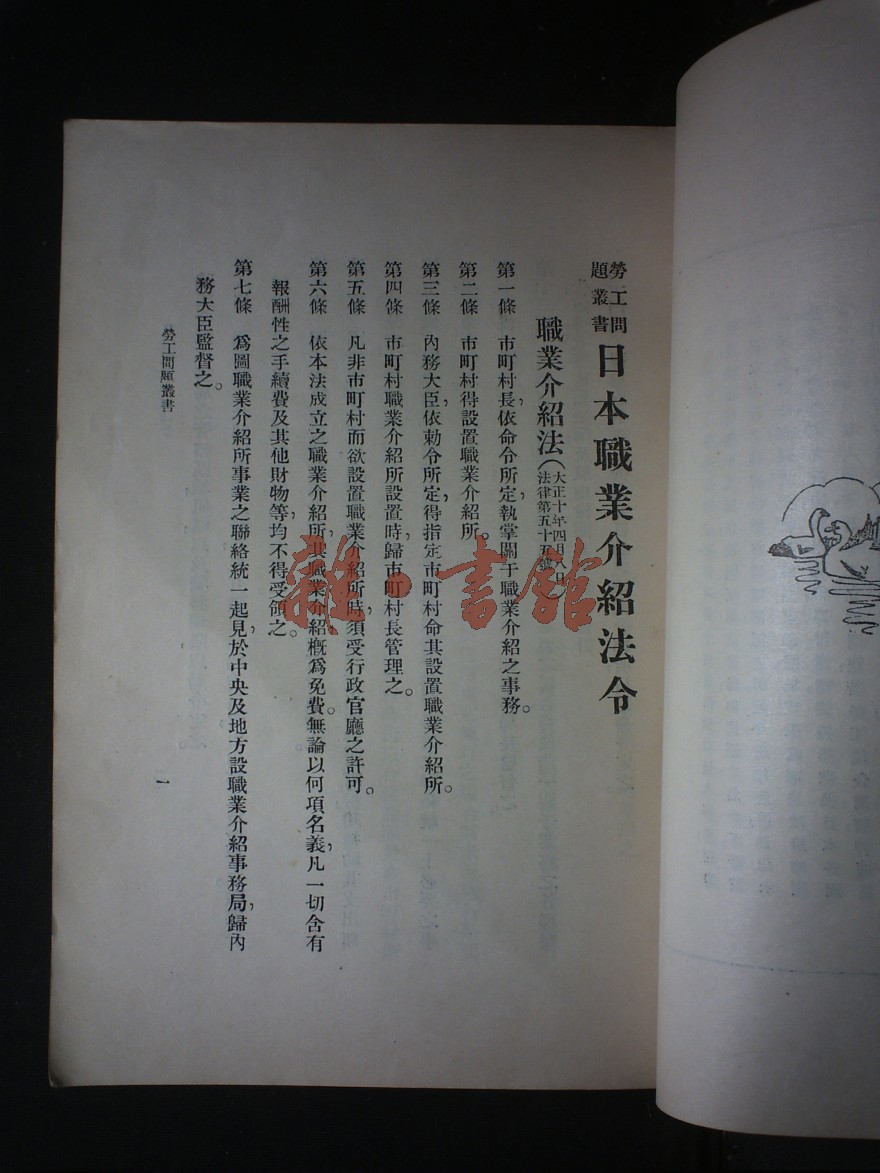 勞工問題叢書 日本職業介紹法令
職業介紹法(大正十年四月八日法律第五十五號)
第一條 市町村長,依命令所定,執掌關于職業介紹之事務。
第二條 市町村得設置職業介紹所。
第三條 內務大臣,依勅令所定,得指定市町村命其設置職業介紹所。
第四條 市町村職業介紹所設置時,歸市町村長管理之。
第五條 凡非市町村而欲設置職業介紹所時,須受行政官廳之許可。
第六條 依本法成立之職業介紹所,其職業介紹槪爲免費。無論以何項名義,凡一切含有
報酬性之手續費及其他財物等,均不得受領之。
第七條 爲圖職業介紹所事業之聯絡統一起見,於中央及地方設職業介紹事務局,歸內
務大臣監督之。
勞工問題叢書
一
雜·書館